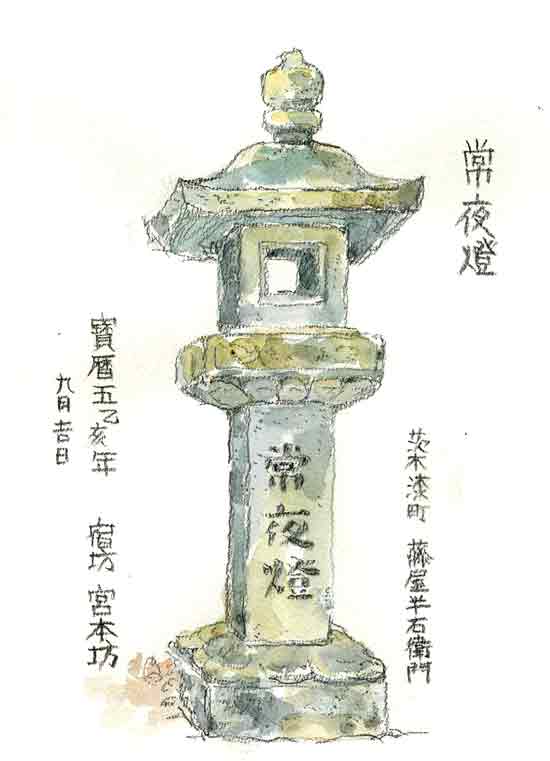 常夜燈
常夜燈
茨木漆町 藤屋半右衛門
寶暦五乙亥年 宿坊 宮本坊
九月吉日